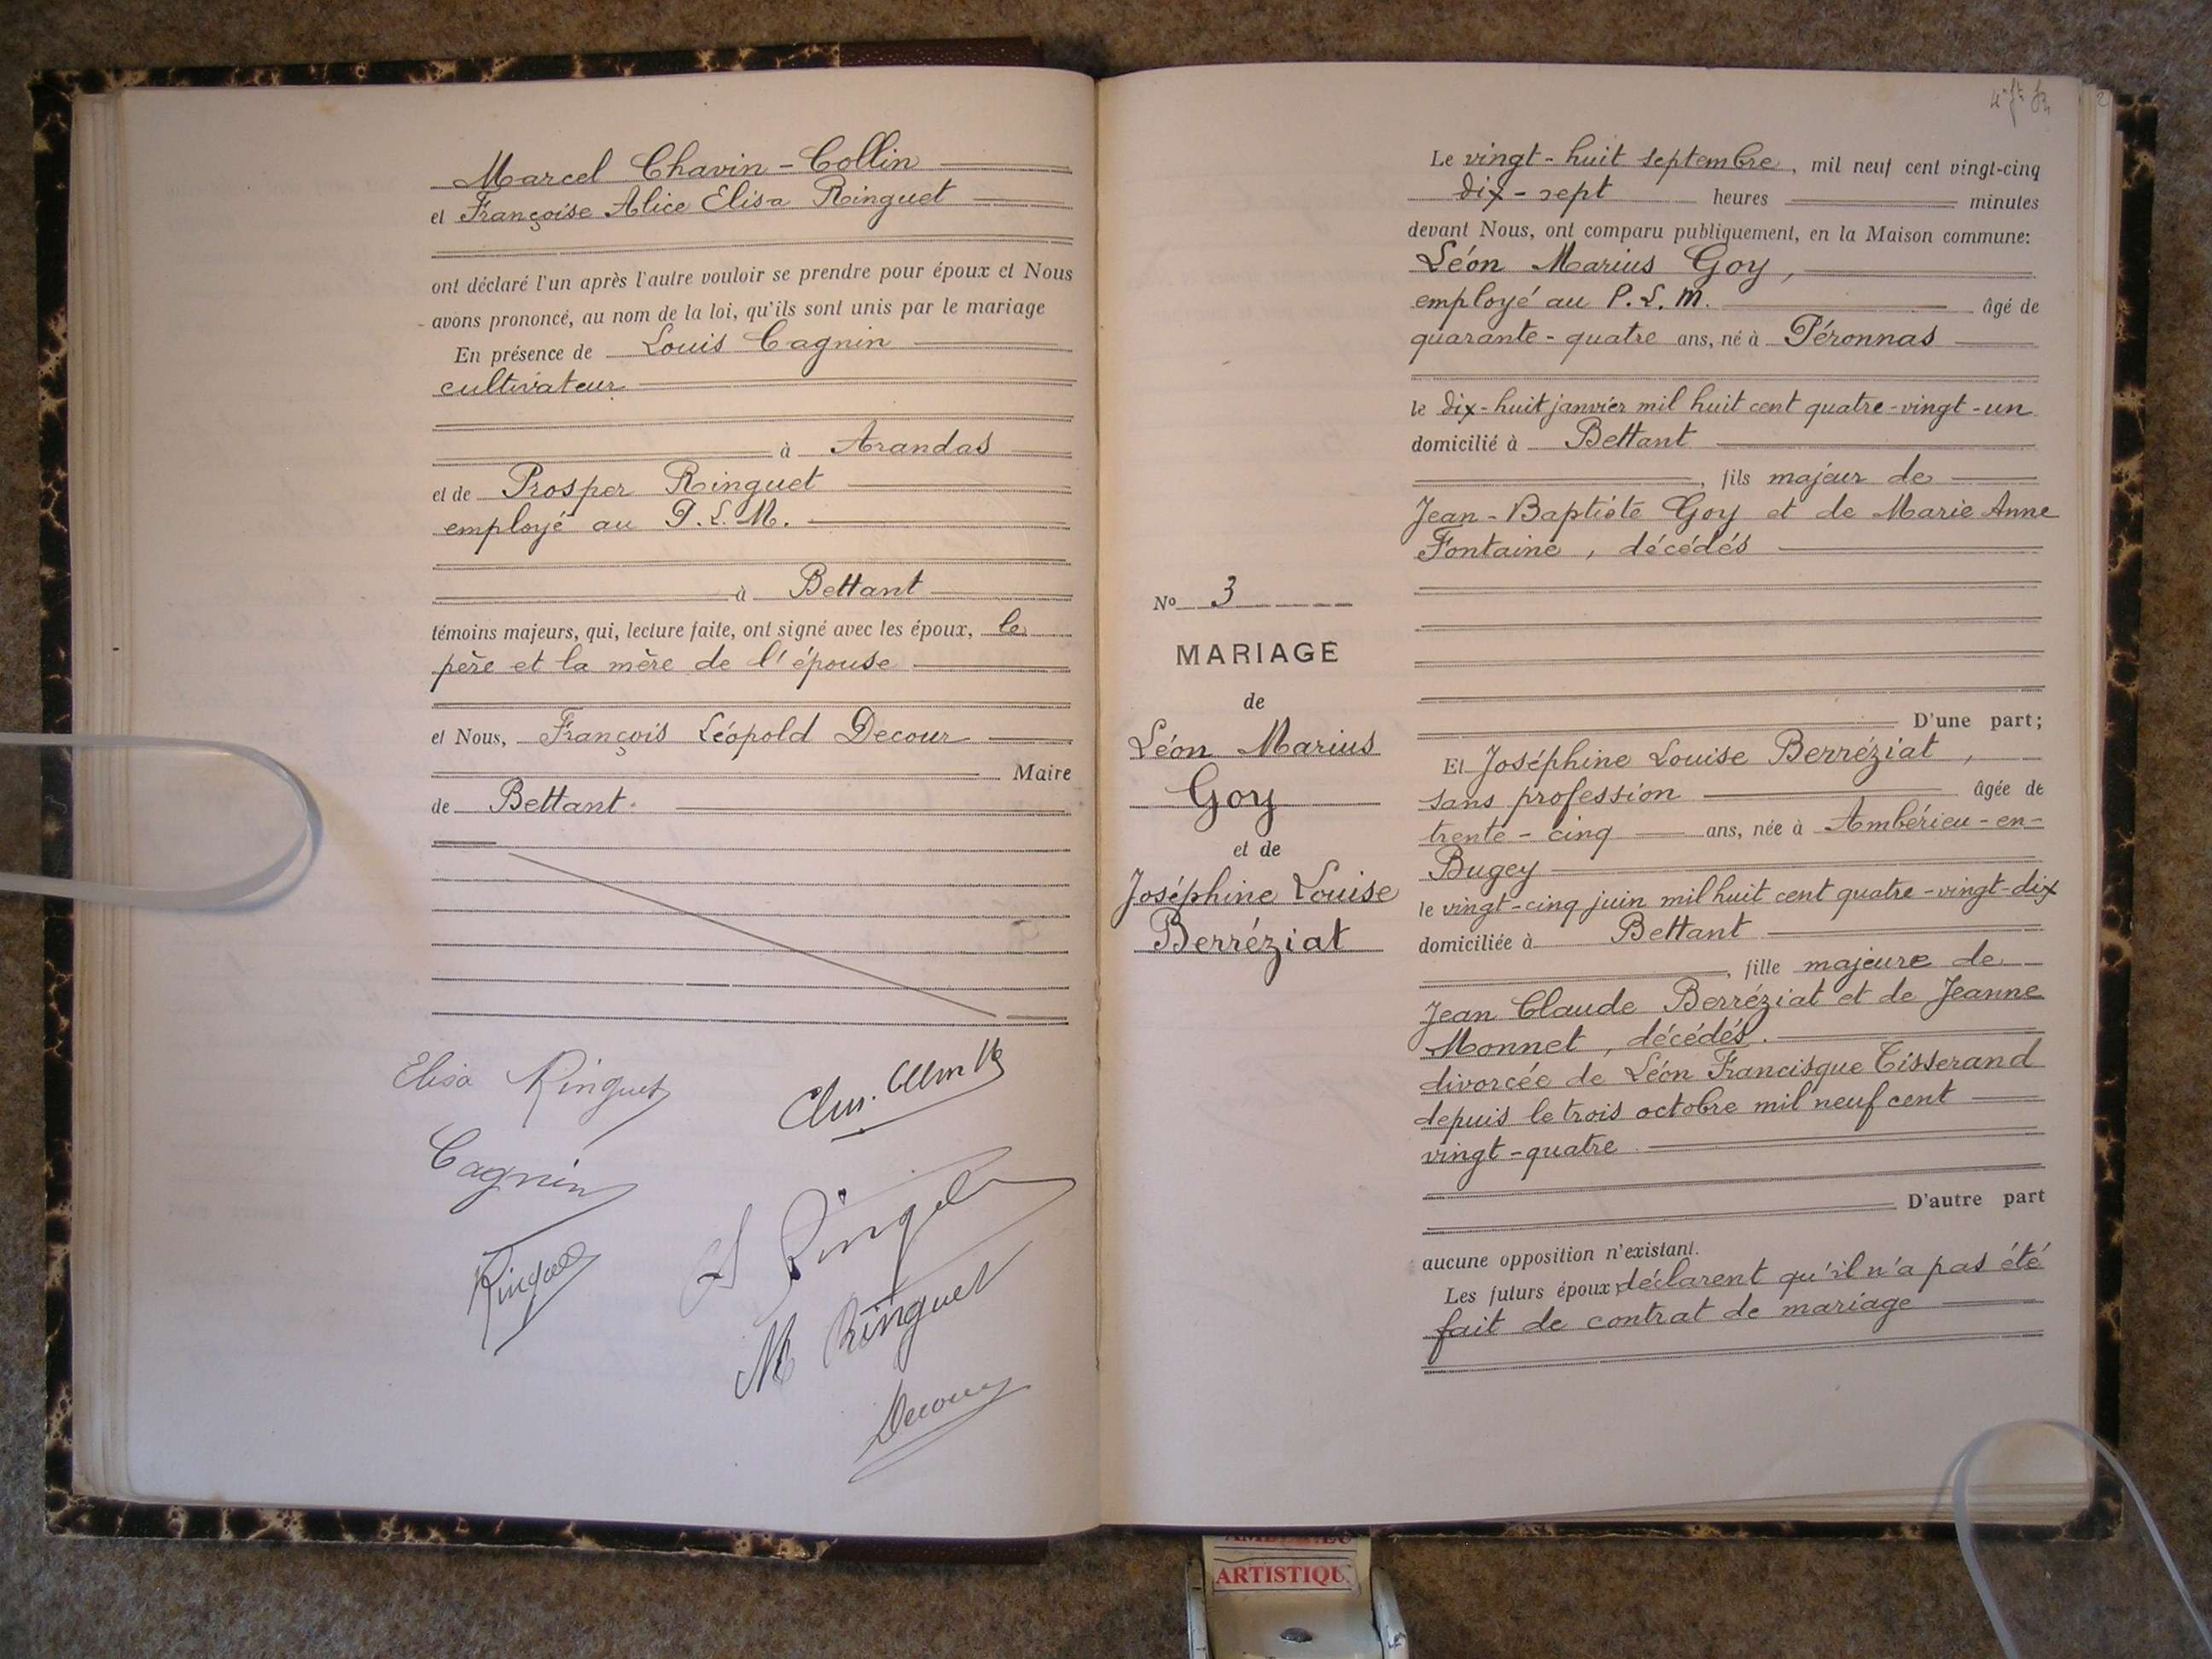 Marcel Chavin-Collin
et Françoise Alice Elisa Ringuet
ont déclaré l'un après l'autre vouloir se prendre pour époux et Nous
avons prononcé, au nom de la loi, qu'ils sont unis par le mariage
En présence de Louis Cagnin
cultivateur
à Arandas
et de Prosper Ringuet
employé au P.L.M.
à Bettant
témoins majeurs, qui, lecture faite, ont signé avec les époux, le
père et la mère de l'épouse
et Nous, François Léopold Decour
Maire
de Bettant
Elisa Ringuet
Cagnin
Ringuet
M Ringuet
Decour
No 3
MARIAGE
de
Léon Marius
Goy
et de
Joséphine Louise
Berréziat
Le vingt-huit septembre, mil neuf cent vingt-cinq
dix-sept heures minutes
devant Nous, ont comparu publiquement, en la Maison commune:
Léon Marius Goy,
employé au P.L.M. âgé de
quarante-quatre ans, né à Péronnas
le dix-huit janvier mil huit cent quatre-vingt-un
domicilié à Bettant
, fils majeur de
Jean-Baptiste Goy et de Marie Anne
Fontaine, décédés
D'une part;
Et Joséphine Louise Berréziat,
sans profession âgée de
trente-cinq ans, née à Ambérieu-en-
Bugey
le vingt-cinq juin mil huit cent quatre-vingt-dix
domiciliée à Bettant
, fille majeure de
Jean Claude Berréziat et de Jeanne
Monnet, décédés.
divorcée de Léon Francisque Tisserand
depuis le trois octobre mil neuf cent
vingt-quatre
D'autre part
aucune opposition n'existant.
Les futurs époux déclarent qu'il n'a pas été
fait de contrat de mariage
ARTISTIQU